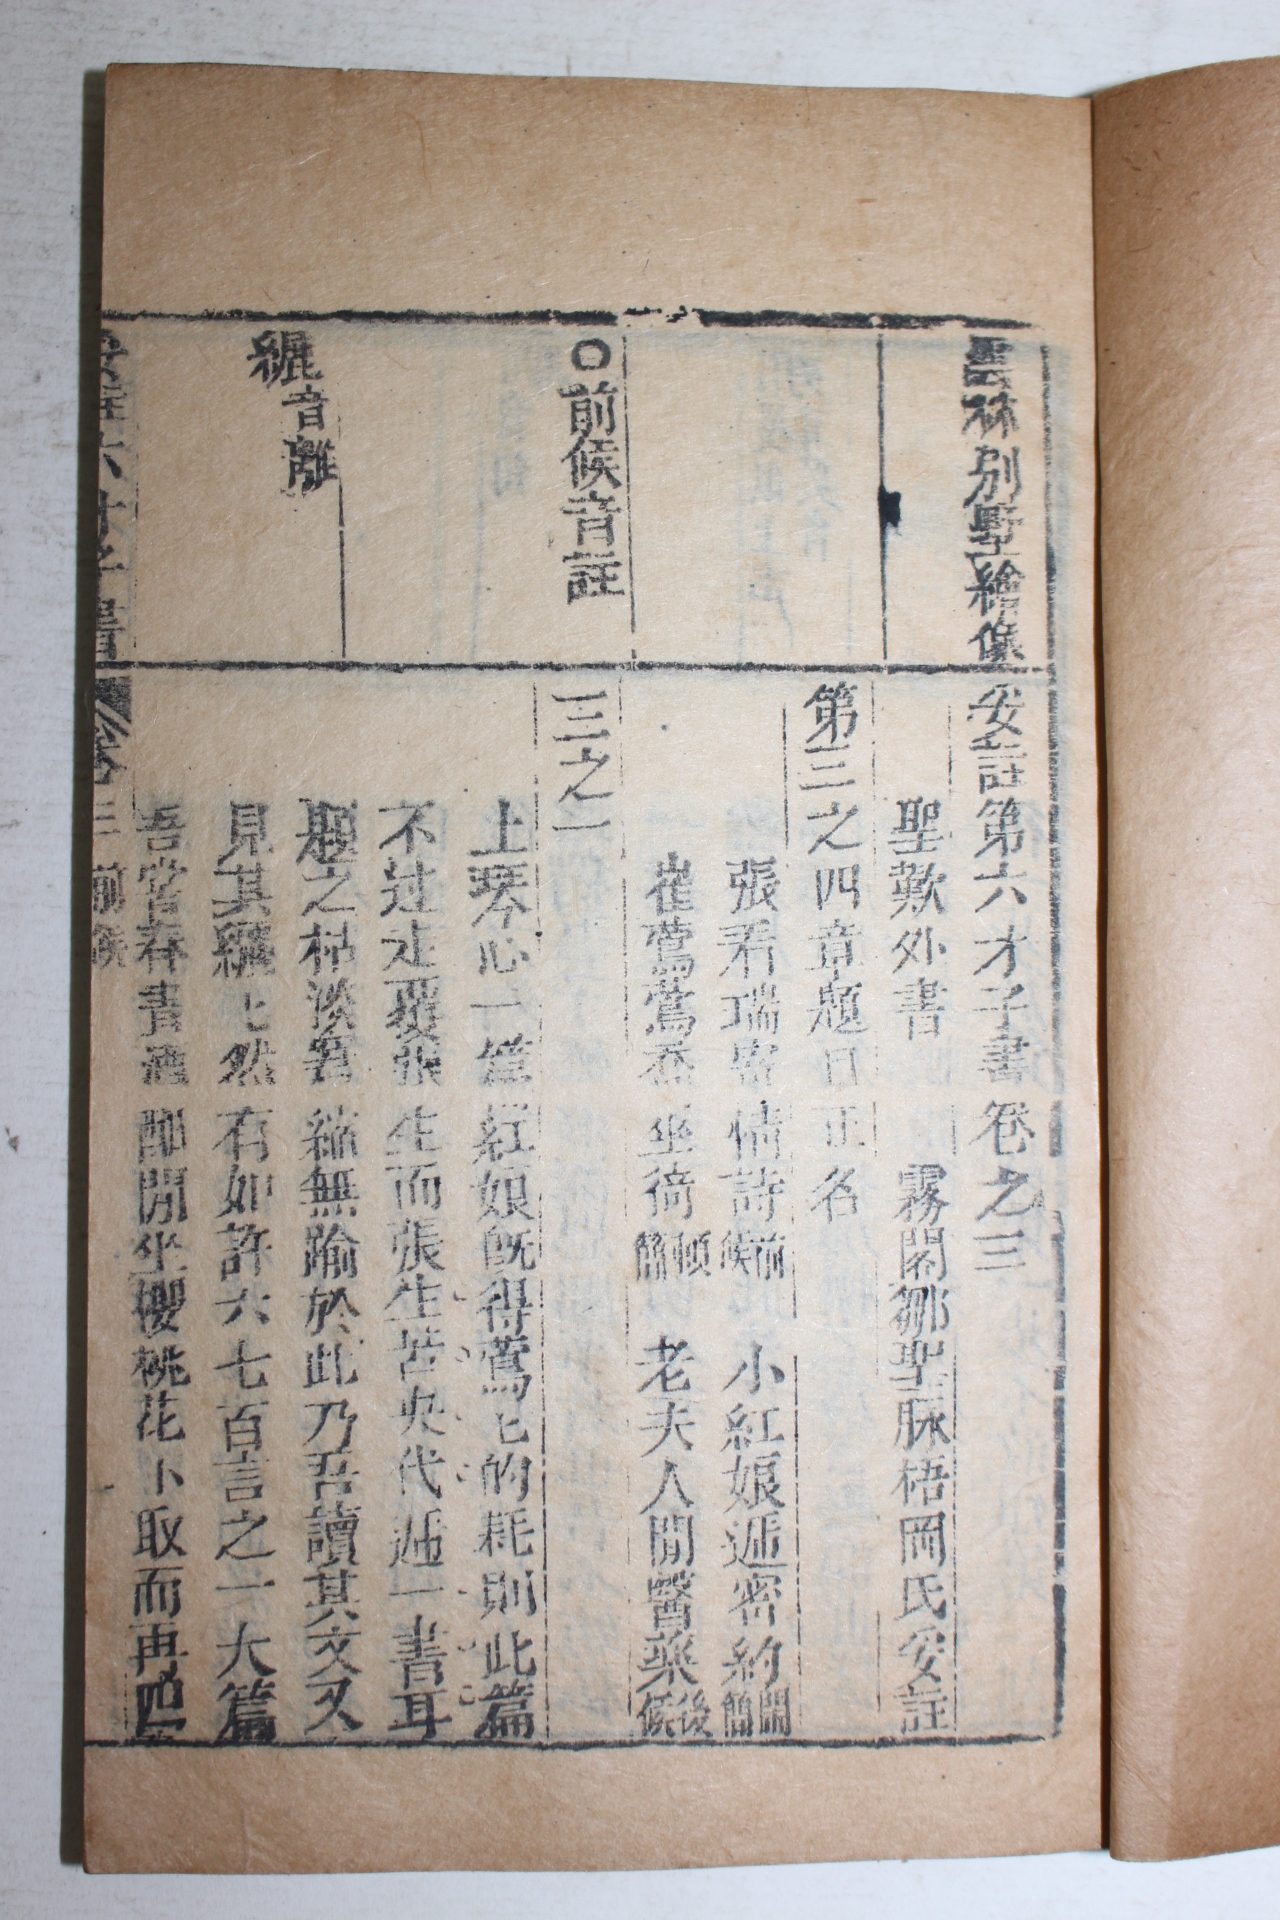 雲林別墅繪像
○前候音註
纚音離
妥註第六才子書卷之三
聖歎外書　霧閣鄒聖脉梧岡氏妥註
第三之四章題目正名
張君瑞寄情詩前候　小紅娘遞密約鬧簡
崔鶯鶯乔坐衙頓簡　老夫人閒醫藥後候
三之一
上琴心一篇紅娘既得鶯匕的耗則此篇
不过走覆張生而張生苦央代遞一書耳
題之枯淡窘縮無踰於此乃吾讀其文又
見其纚匕然有如許六七百言之一大篇
吾嘗春晝酒酣閒坐櫻桃花下取而再四
妥註六才子書　卷三　前候